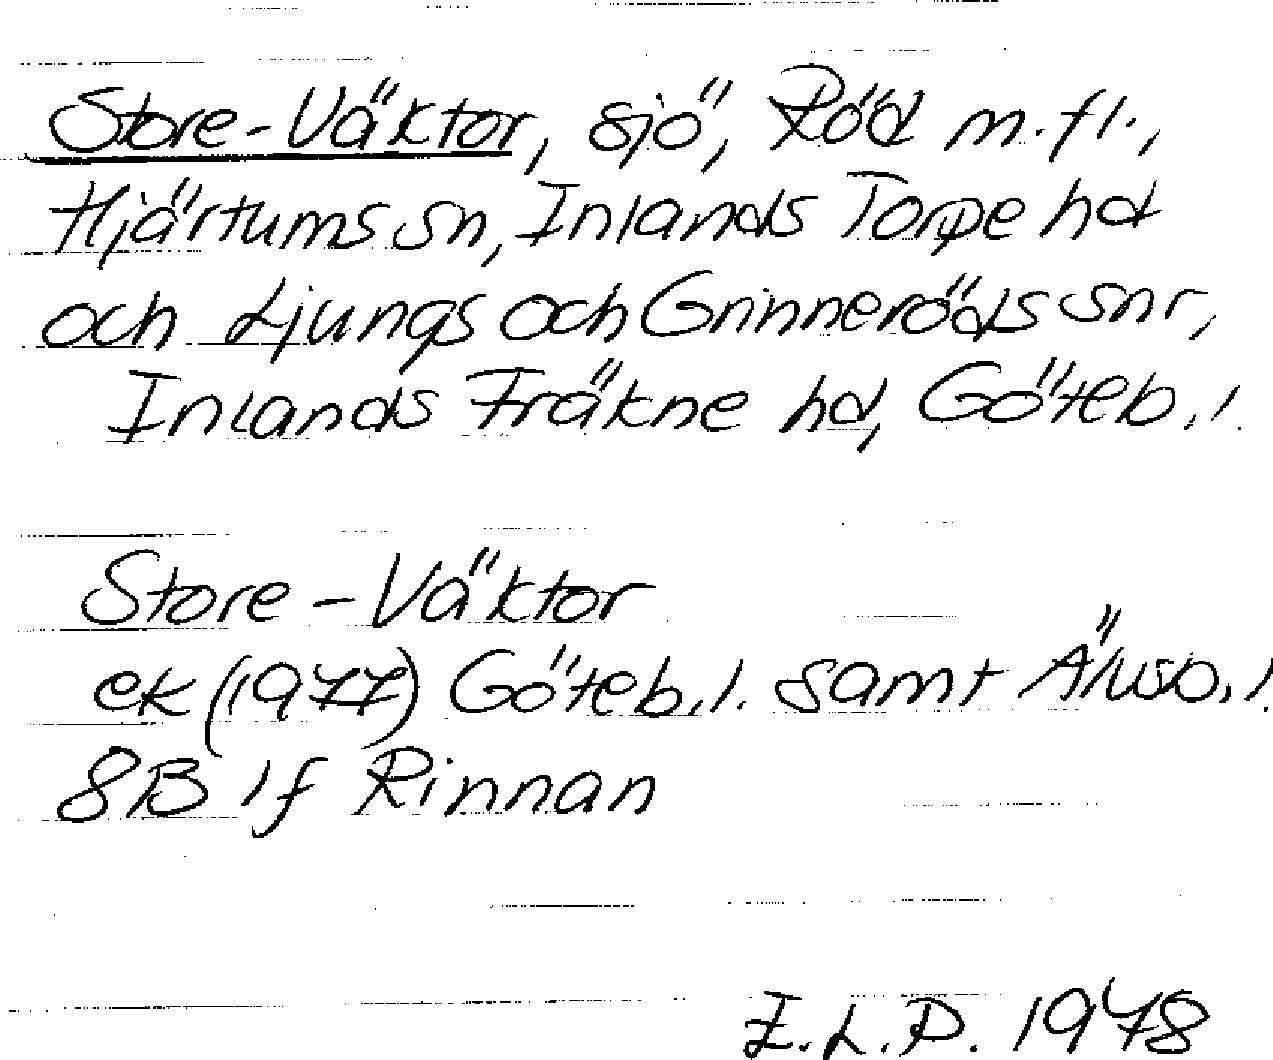 Store-Väktor, sjö, Röd m.fl.,
Hjärtums sn, Inlands Torpe hd
och Ljungs och Grinneröds snr,
Inlands Fräkne hd, Göteb.l.
Store-Väktor
ek (1977) Göteb.l. samt Älvsb.l.
8B 1f Rinnan
E.L.P. 1978